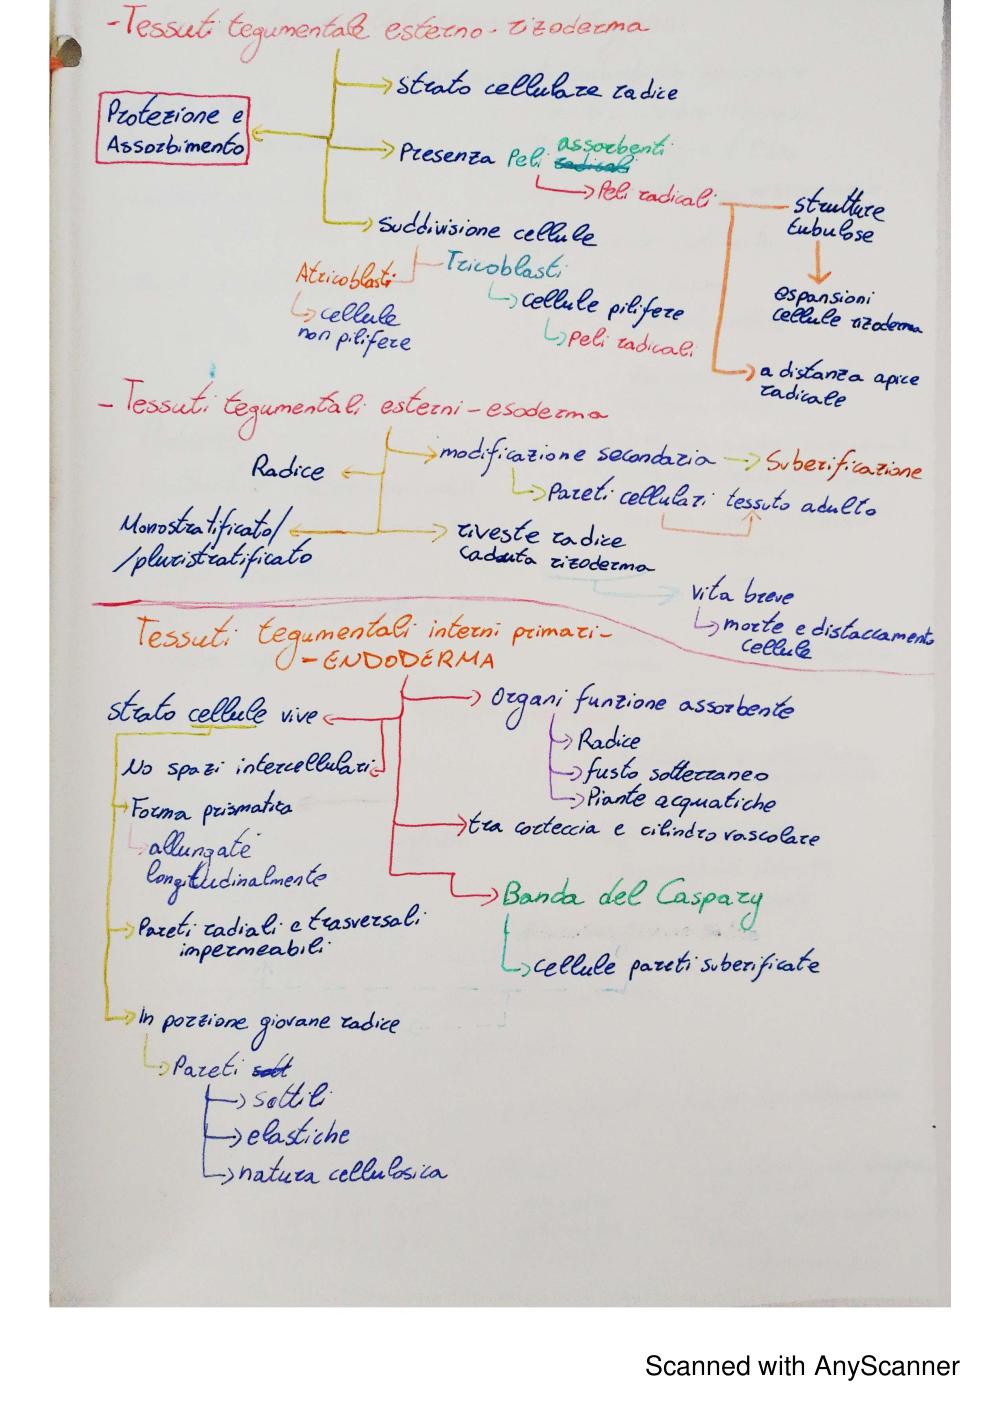 -Tessuti tegumentale esterno- rizoderma
strato cellulare radice
Protezione e
Assorbimento
Presenza Peli assorbenti
Peli radicali
strutture
tubulose
espansioni
cellule rizoderma
a distanza apice
radicale
Suddivisione cellule
Tricoblasti
Atricoblasti
cellule
non pilifere
cellule pilifere
Peli radicali
- Tessuti tegumentali esterni-esoderma
modificazione secondaria
Suberificazione
Radice
Pareti cellulari tessuto adulto
Monostratificato/
/pluristratificato
riveste radice
caduta rizoderma
vita breve
morte e distaccamento
cellule
Tessuti tegumentali interni primari-
-ENDODERMA
strato cellule vive
Organi funzione assorbente
Radice
fusto sotterraneo
Piante acquatiche
No spazi intercellulari
Forma prismatica
allungate
longitudinalmente
tra corteccia e cilindro vascolare
Banda del Caspary
cellule pareti suberificate
Pareti radiali e trasversali
impermeabili
In porzione giovane radice
Pareti
sottili
elastiche
natura cellulosica
Scanned with AnyScanner